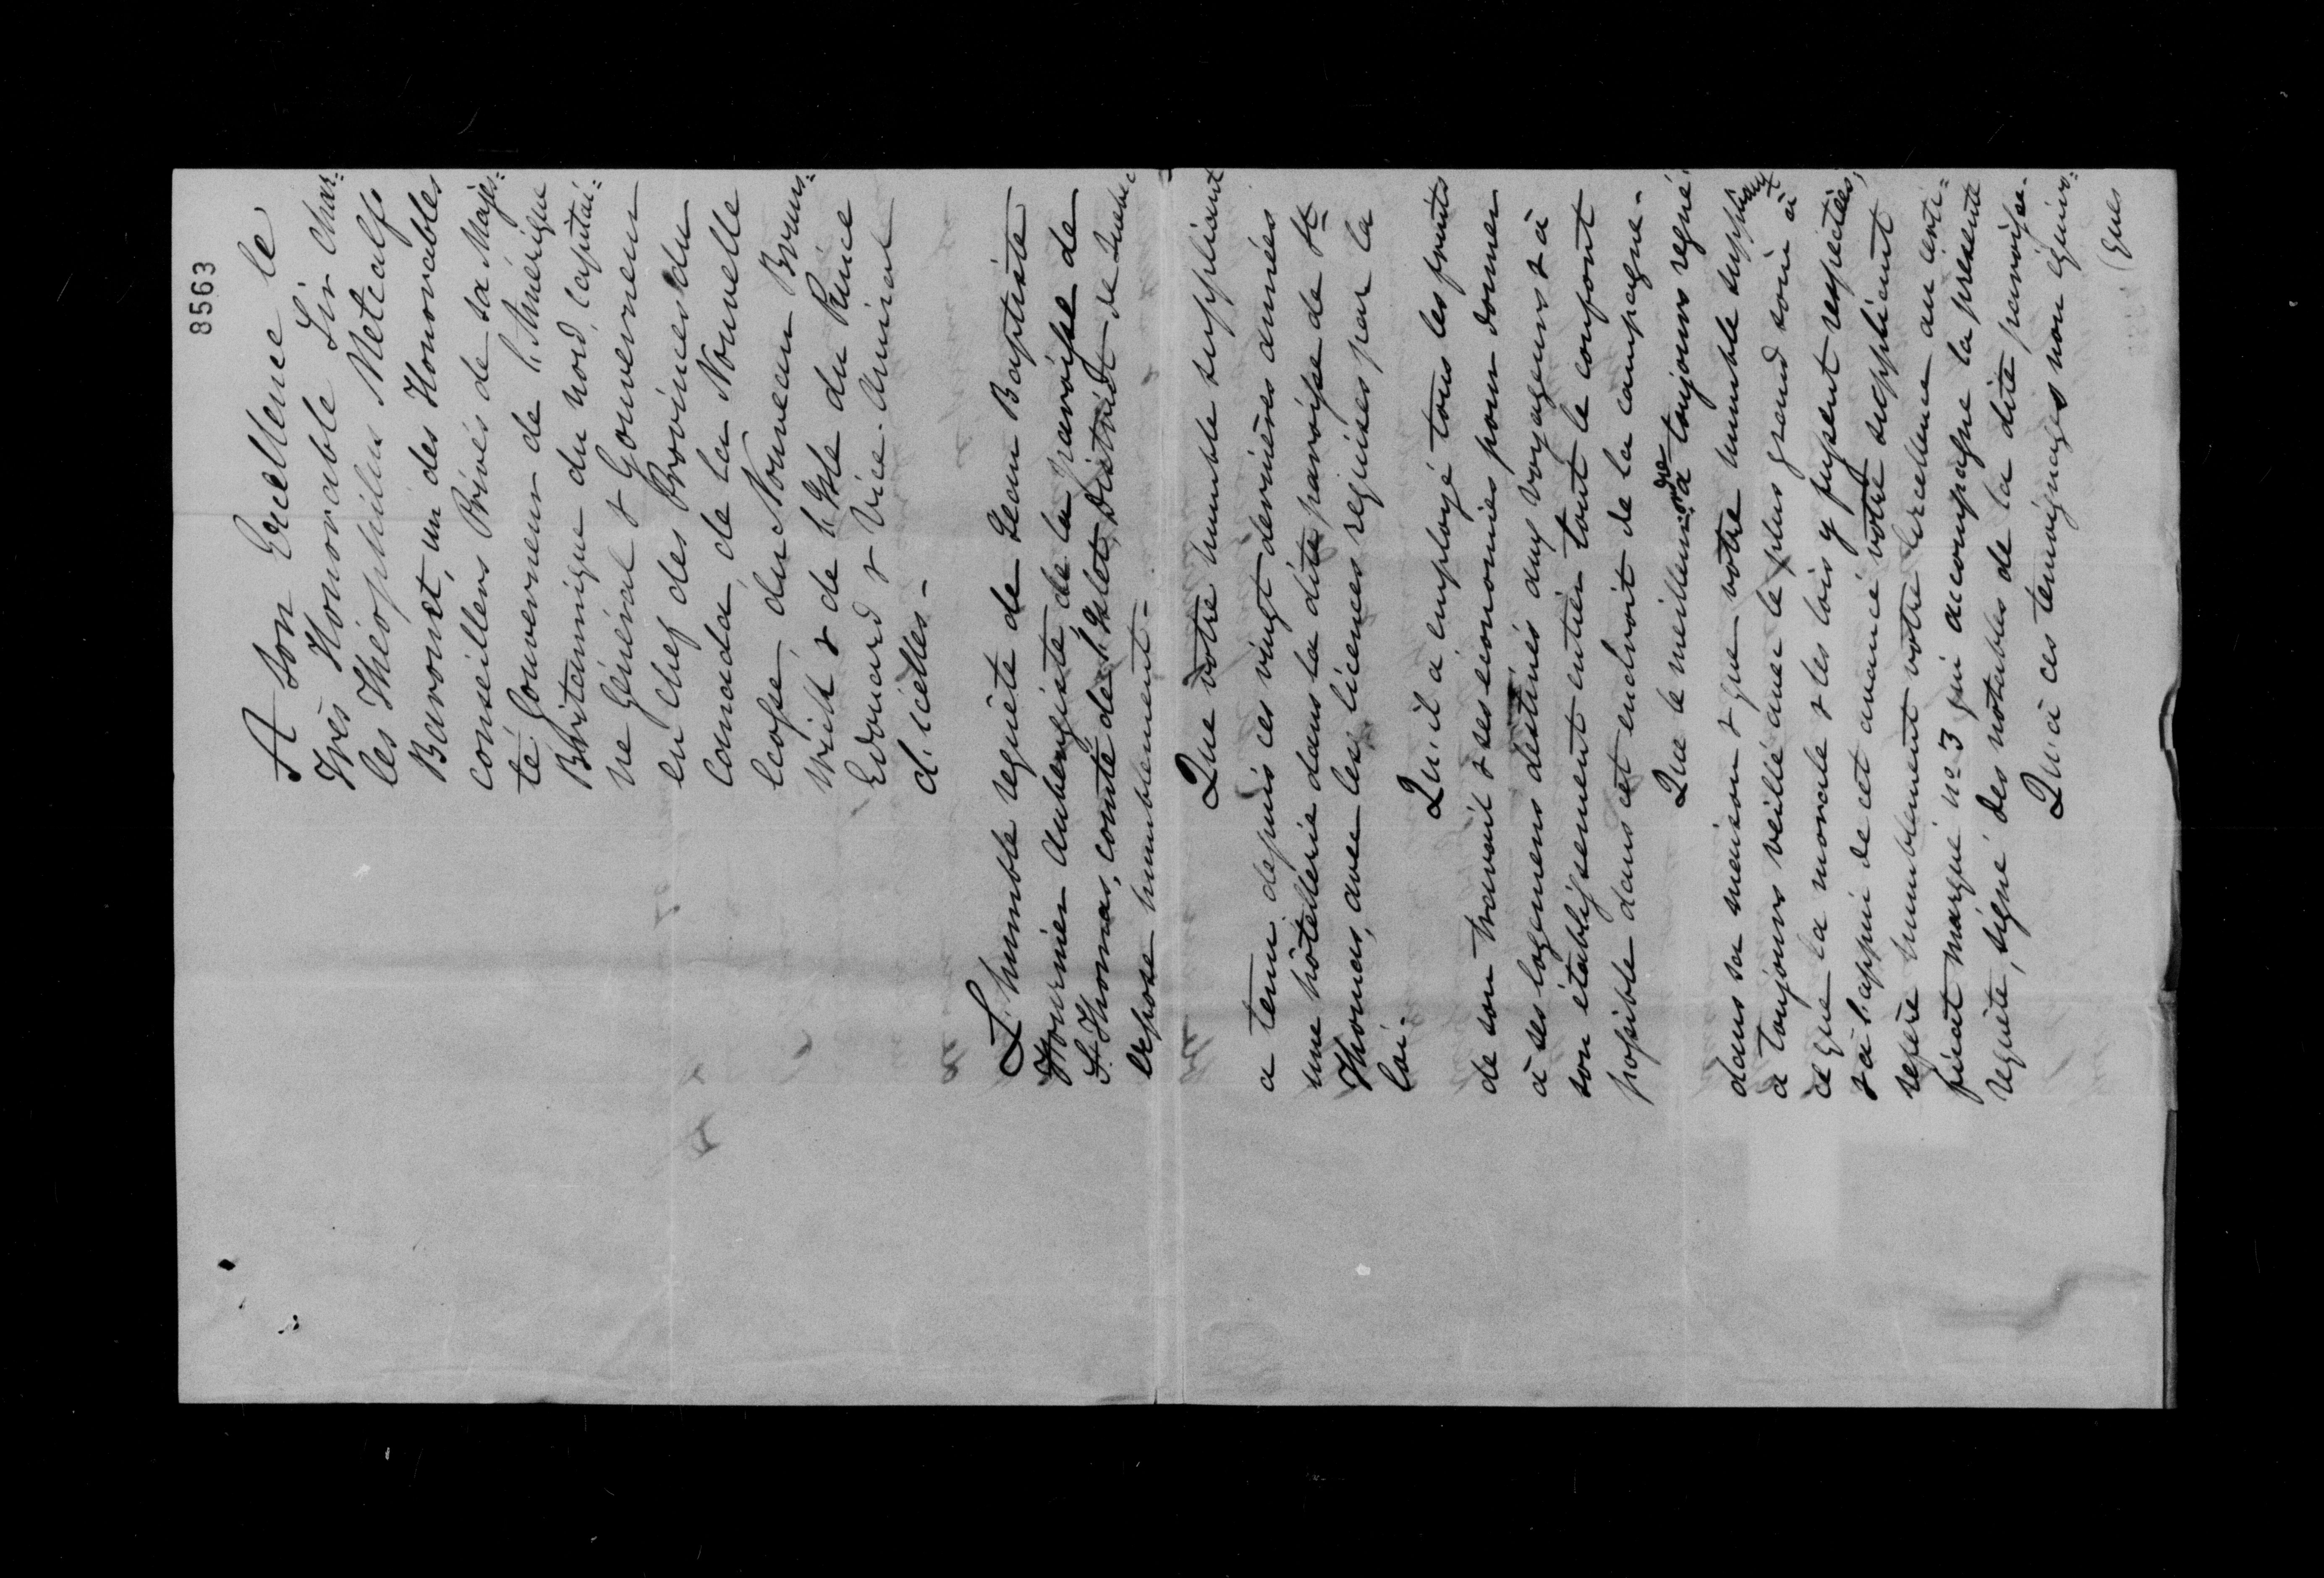 8563
A Son Excellence le
Très Honorable Sir Char=
les Théophilus Metcalfe
Baronet, un des Honorables
conseillers Privés de sa Majes=
té Gouverneur de l'Amérique
Britannique du nord, Capitai=
ne Général & Gouverneur
en Chef des Provinces du
Canada, de la Nouvelle
Ecosse, du Nouveau Bruns=
wick & de l'Isle du Prince
Edouard & Vice-Amiral
d'icelles -
L'humble requête de Jean Baptiste
Fournier Aubergiste, de la paroisse de
St. Thomas, comté de l'Islet, District de Québec
Expose humblement -
Que votre humble suppliant
a tenu depuis ces vingt dernières années
une hôtellerie dans la dite paroisse de St
Thomas, avec les licences requises par la
loi.
Qu'il a employé tous les fruits
de son travail & ses économies pour donner
à ses logemens destinés aux voyageurs & à
son établissement entier tout le confort
possible dans cet endroit de la campagne -
Que le meilleur ordre a toujours régné
dans sa maison & que votre humble suppliant
a toujours veillé avec le plus grand soin à
ce que la morale & les lois y fussent respectées,
& à l'appui de cet avancé votre suppliant
refère humblement votre Excellence au certi=
ficat marqué no. 3 qui accompagne la présente
requête, signé des notables de la dite paroisse.
Qu'à ces témoignages non équivo=
(ques